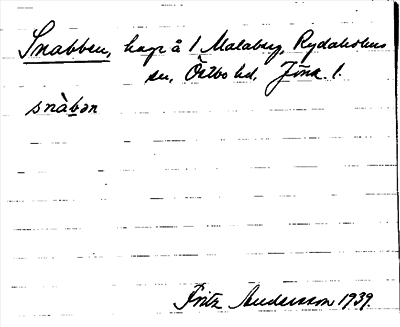 Snabben, hage å 1 Malaberg, Rydaholms
sn, Östbo hd, Jönk. l.
snàbən
Fritz Andersson 1939.